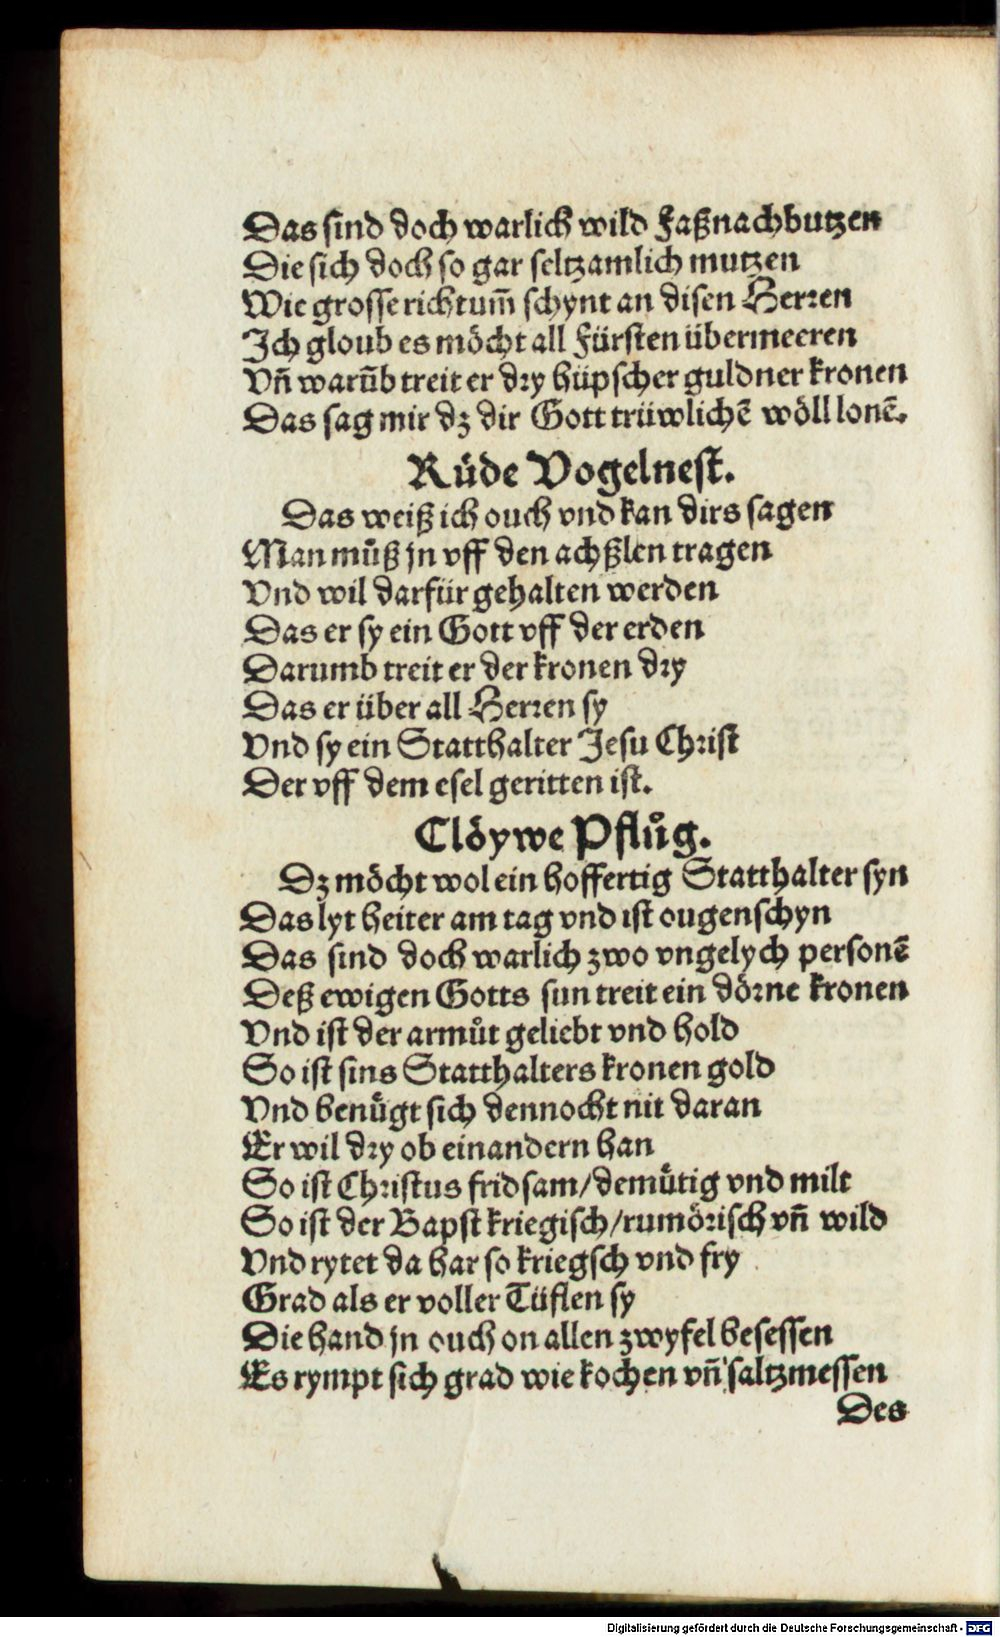 Das sind doch warlich wild Faßnachbutzen
Die sich doch so gar seltzamlich mutzen
Wie grosse richtum̄ schynt an disen Herꝛen
Ich gloub es möcht all Fürsten übermeeren
Vn̄ warūb treit er dꝛy hüpscher guldner kronen
Das sag mir dz dir Gott trüwlichē wöll lonē.
Rüde Vogelnest.
Das weiß ich ouch vnd kan dirs sagen
Man muͦß jn vff den achßlen tragen
Vnd wil darfür gehalten werden
Das er sy ein Gott vff der erden
Darumb treit er der kronen dꝛy
Das er über all Herꝛen sy
Vnd sy ein Statthalter Jesu Chꝛist
Der vff dem esel geritten ist.
Clöywe Pfluͦg.
Dz möcht wol ein hoffertig Statthalter syn
Das lyt heiter am tag vnd ist ougenschyn
Das sind doch warlich zwo vngelych personē
Deß ewigen Gotts sun treit ein döꝛne kronen
Vnd ist der armuͦt geliebt vnd hold
So ist sins Statthalters kronen gold
Vnd benuͤgt sich dennocht nit daran
Er wil dꝛy ob einandern han
So ist Chꝛistus fridsam/demuͤtig vnd milt
So ist der Bapst kriegisch/rumöꝛisch vn̄ wild
Vnd rytet da har so kriegsch vnd fry
Grad als er voller Tüflen sy
Die hand jn ouch on allen zwyfel besessen
Es rympt sich grad wie kochen vn̄ saltzmessen
Des
Digitalisierung gefördert durch die Deutsche Forschungsgemeinschaft - DFG